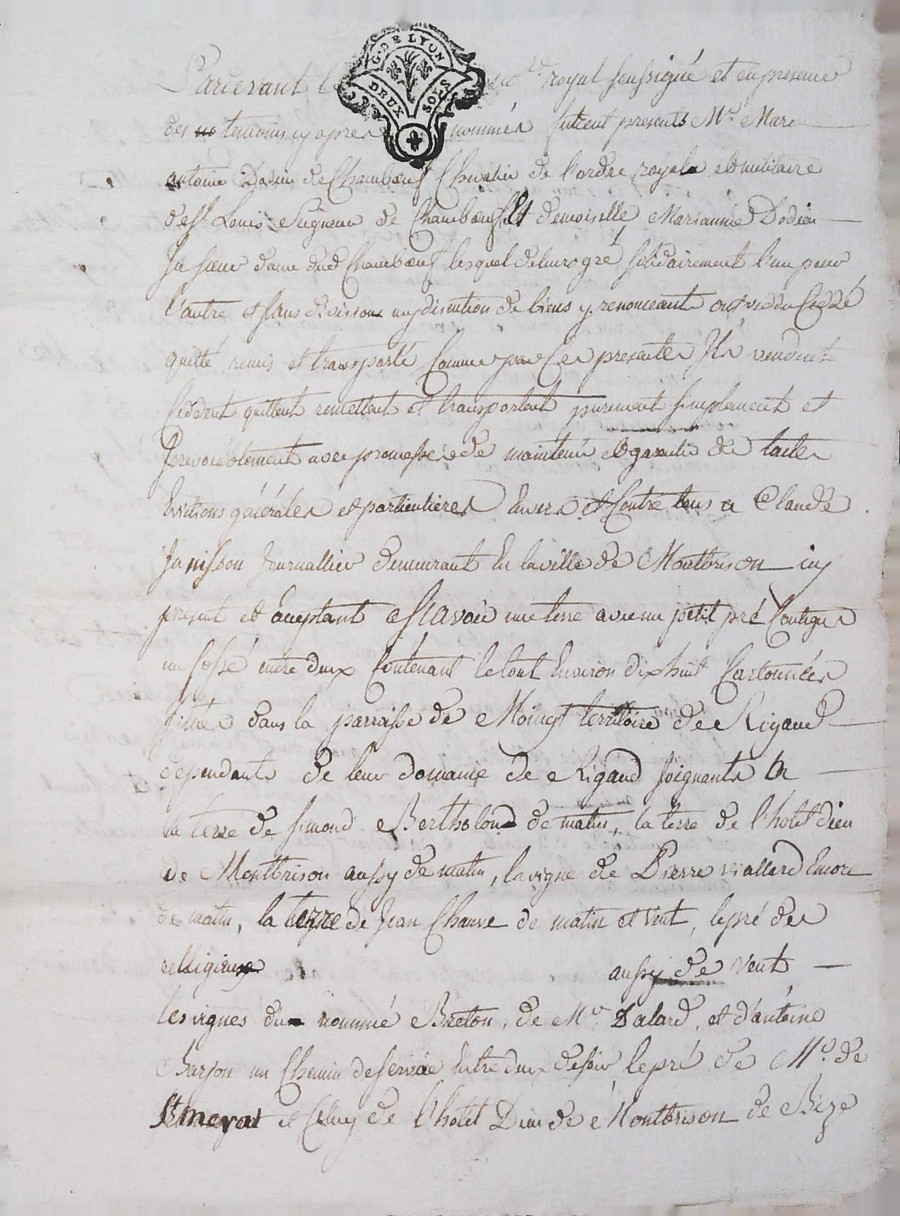 G. DE LYON
DEUX SOLS
Pardevant le no.re royal soussigné et en presence
des temoins cy apres nommés furent presents Mr. Marc
antoine Dodin de Chambœuf Chevalier de l'ordre royale et militaire
de St. Louis Seigneur de Chambœuf Et demoiselle Marianne Dodin
sa sœur dame dud Chambœuf lesquel de leur gré solidairement l'un pour
l'autre et sans division ny discution de biens y renonceant ont vendu Cédé
quitté remis et transporté Comme par Ces presentes Ils vendent
Cédent quittent remettent et transportent purement simplement et
Irevocablement avec promesse de maintenir et garantir de toutes
Evictions générales et particulieres Envers et Contre tous a Claude
Janisson Journallier demeurant En la ville de Montbrison icy
present et acceptant Scavoir une terre avec un petit pré Contigus
un fossé entre deux Contenant le tout Environ dix huit Cartonnées
situés dans la parroisse de Moingt territoire de Rigaud
dependants de leur domaine de Rigaud Joignants a
la terre de Simond Bertholond de matin, la terre de l'hotel dieu
de Montbrison aussy de matin, la vigne de Pierre Viallard Encore
de matin, la terre de Jean Chauve de matin et vent, le pré des
religieux aussy de vent
les vignes du nommé Breton, de Mr. Dalard, et d'antoine
Barjon un Chemin de servée Entre deux de soir le pré de Mr. de
et Celuy de l'hotel Dieu de Montbrison de Bize